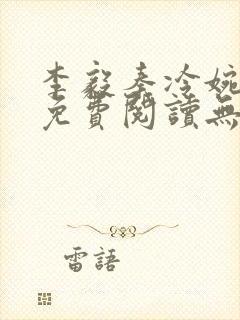 李毅秦冷婉
免費閱讀無
雷語